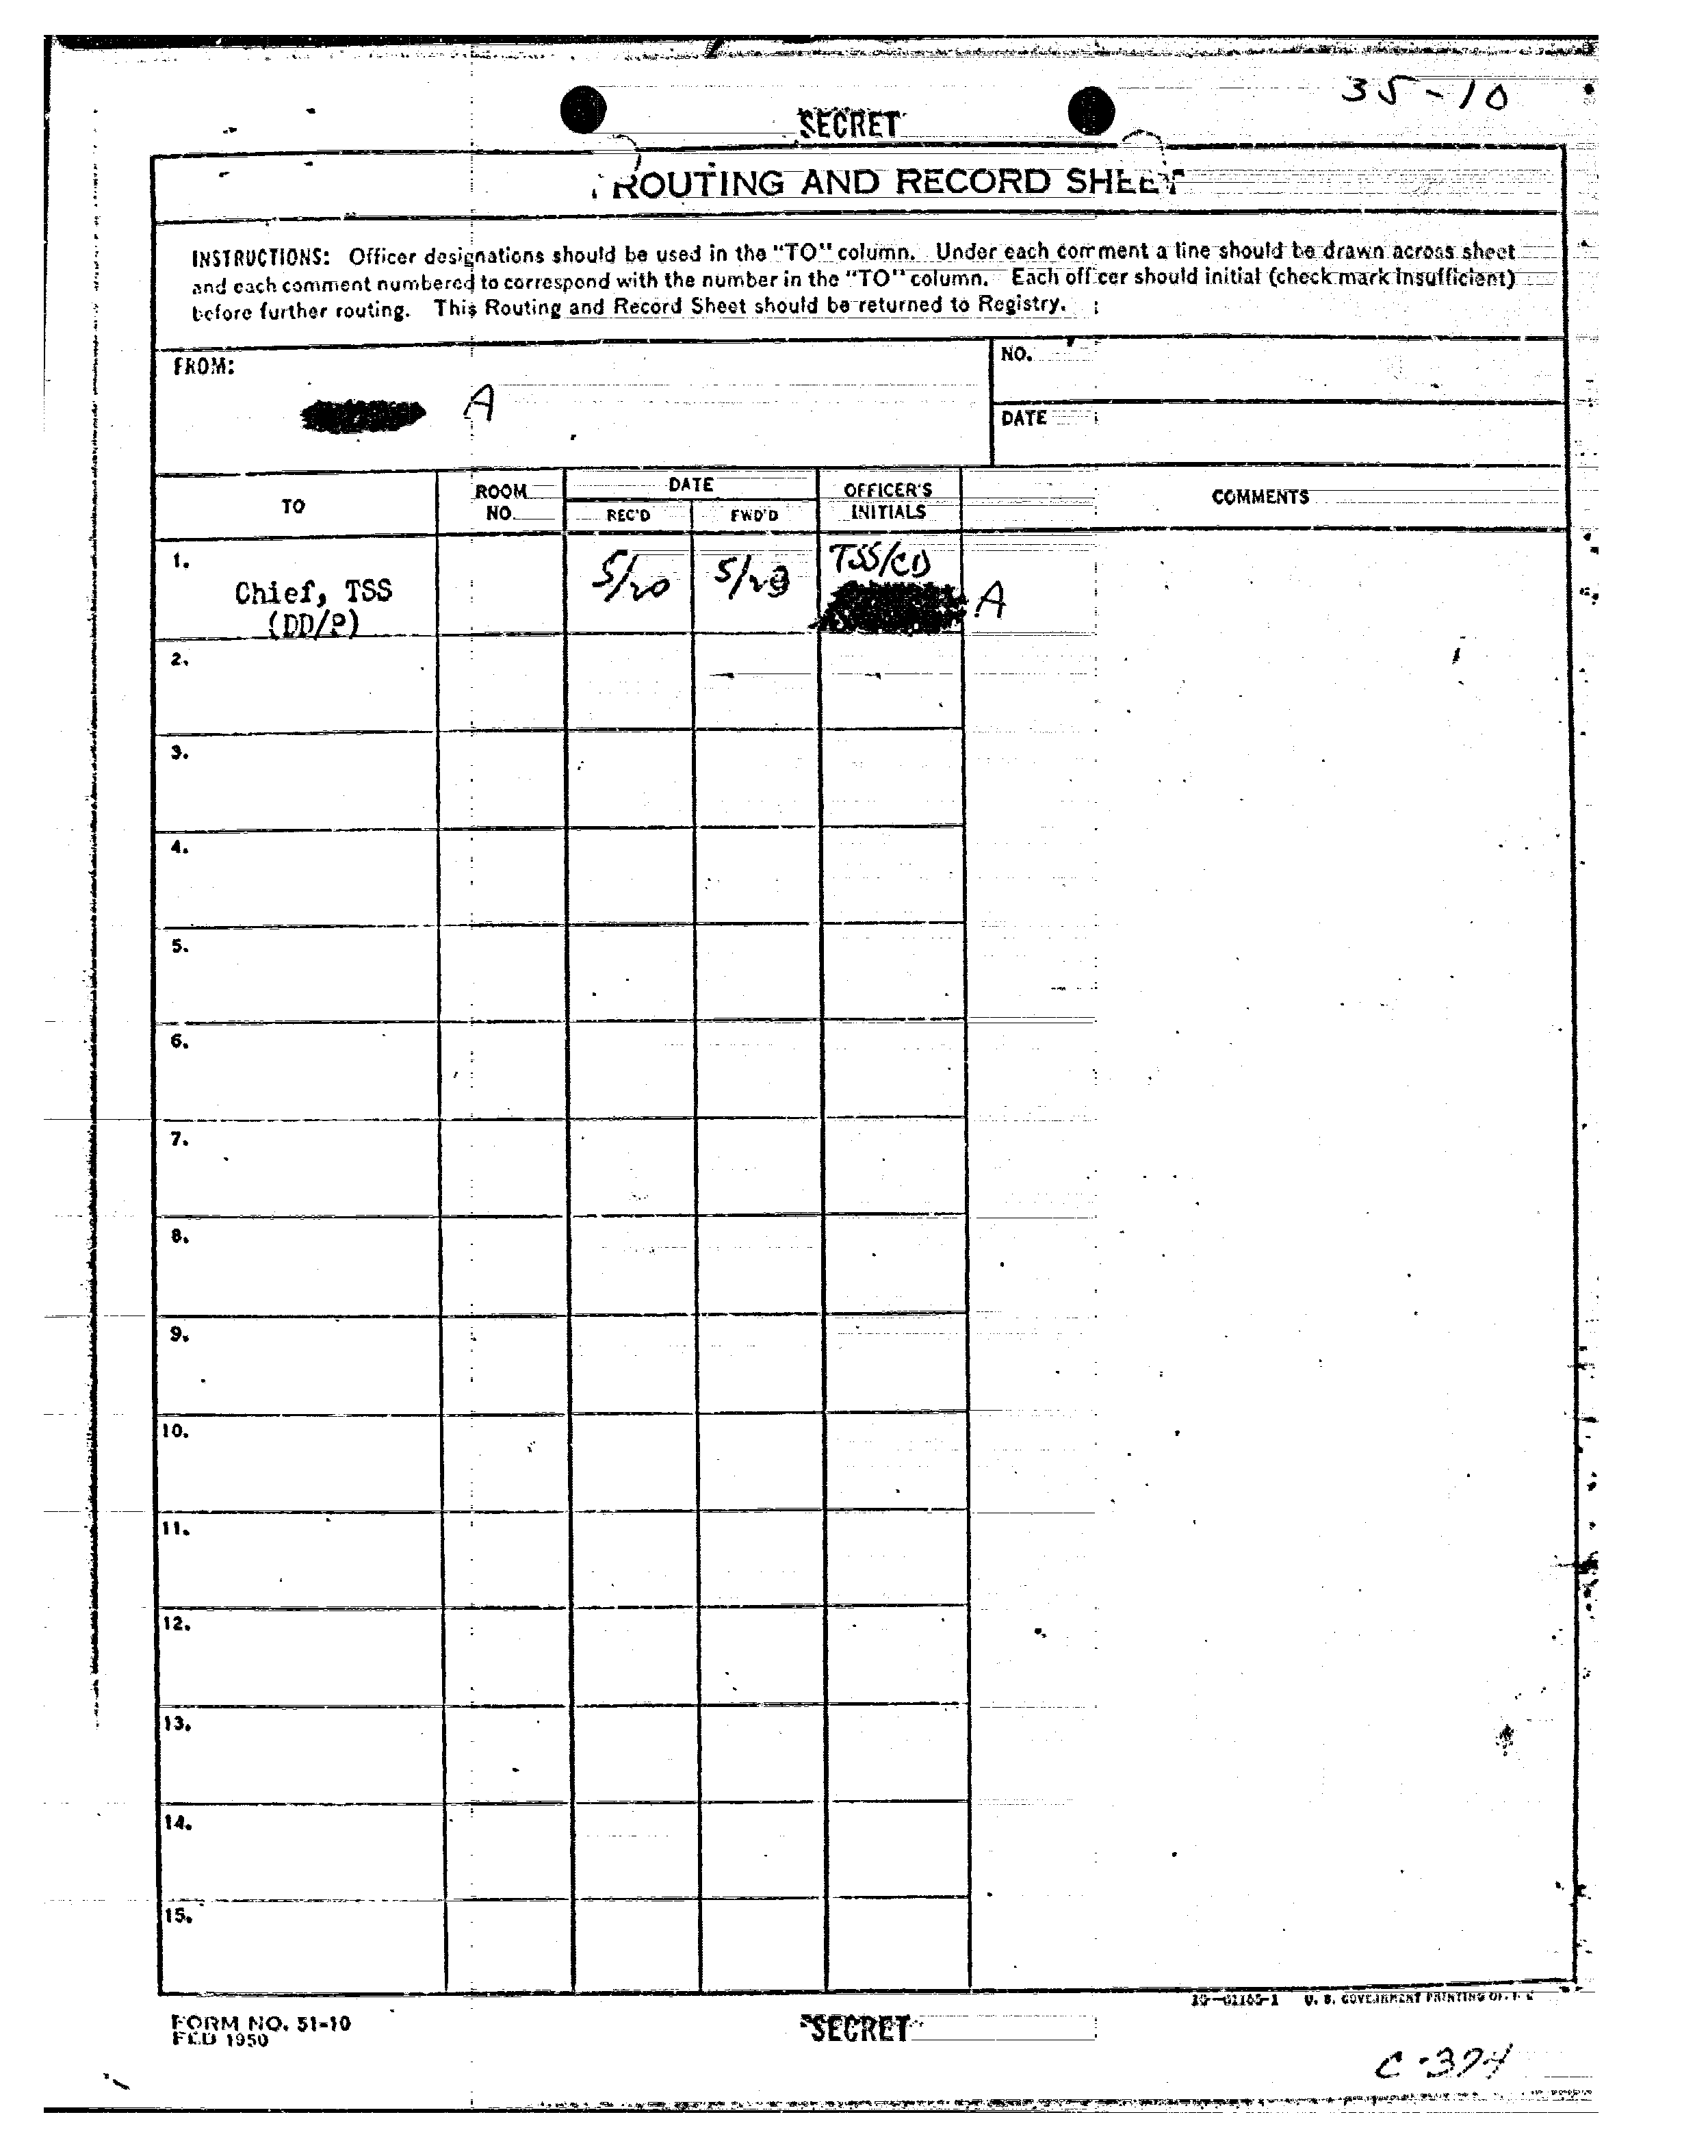 35-10
SECRET
ROUTING AND RECORD SHEET
INSTRUCTIONS: Officer designations should be used in the "TO" column. Under each comment a line should be drawn across sheet
and each comment numbered to correspond with the number in the "TO" column. Each officer should initial (check mark insufficient)
before further routing. This Routing and Record Sheet should be returned to Registry.
FROM:
A
NO.
DATE
TO
ROOM NO.
DATE
REC'D
FWD'D
OFFICER'S INITIALS
COMMENTS
1.
Chief, TSS
(DD/P)
5/20
TSS/CD
A
2.
3.
4.
5.
6.
7.
8.
9.
10.
11.
12.
13.
14.
15.
FORM NO. 51-10
FEB 1950
SECRET
16—61165-1 U. S. GOVERNMENT PRINTING OFFICE